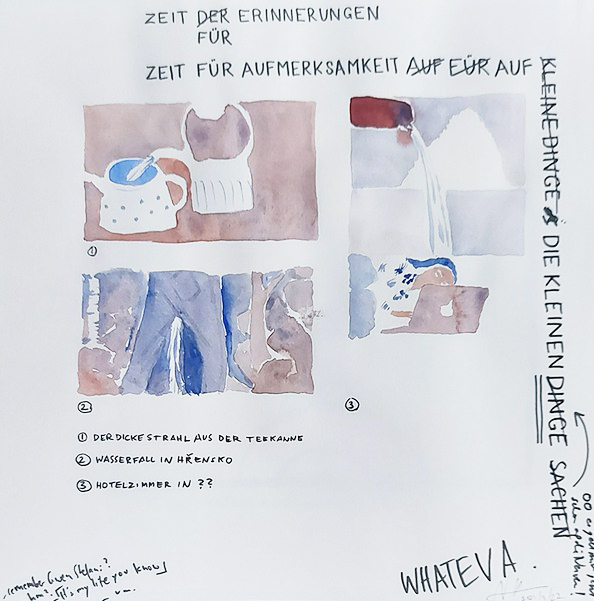 ZEIT DER ERINNERUNGEN
FÜR
ZEIT FÜR AUFMERKSAMKEIT AUF EÜR AUF
KLEINE DINGE DIE KLEINEN DINGE SACHEN
①
②
③
① DER DICKE STRAHL AUS DER TEEKANNE
② WASSERFALL IN HŘENSKO
③ HOTELZIMMER IN ??
remember Gwen Stefani?
It's my life you know
WHATEVA.